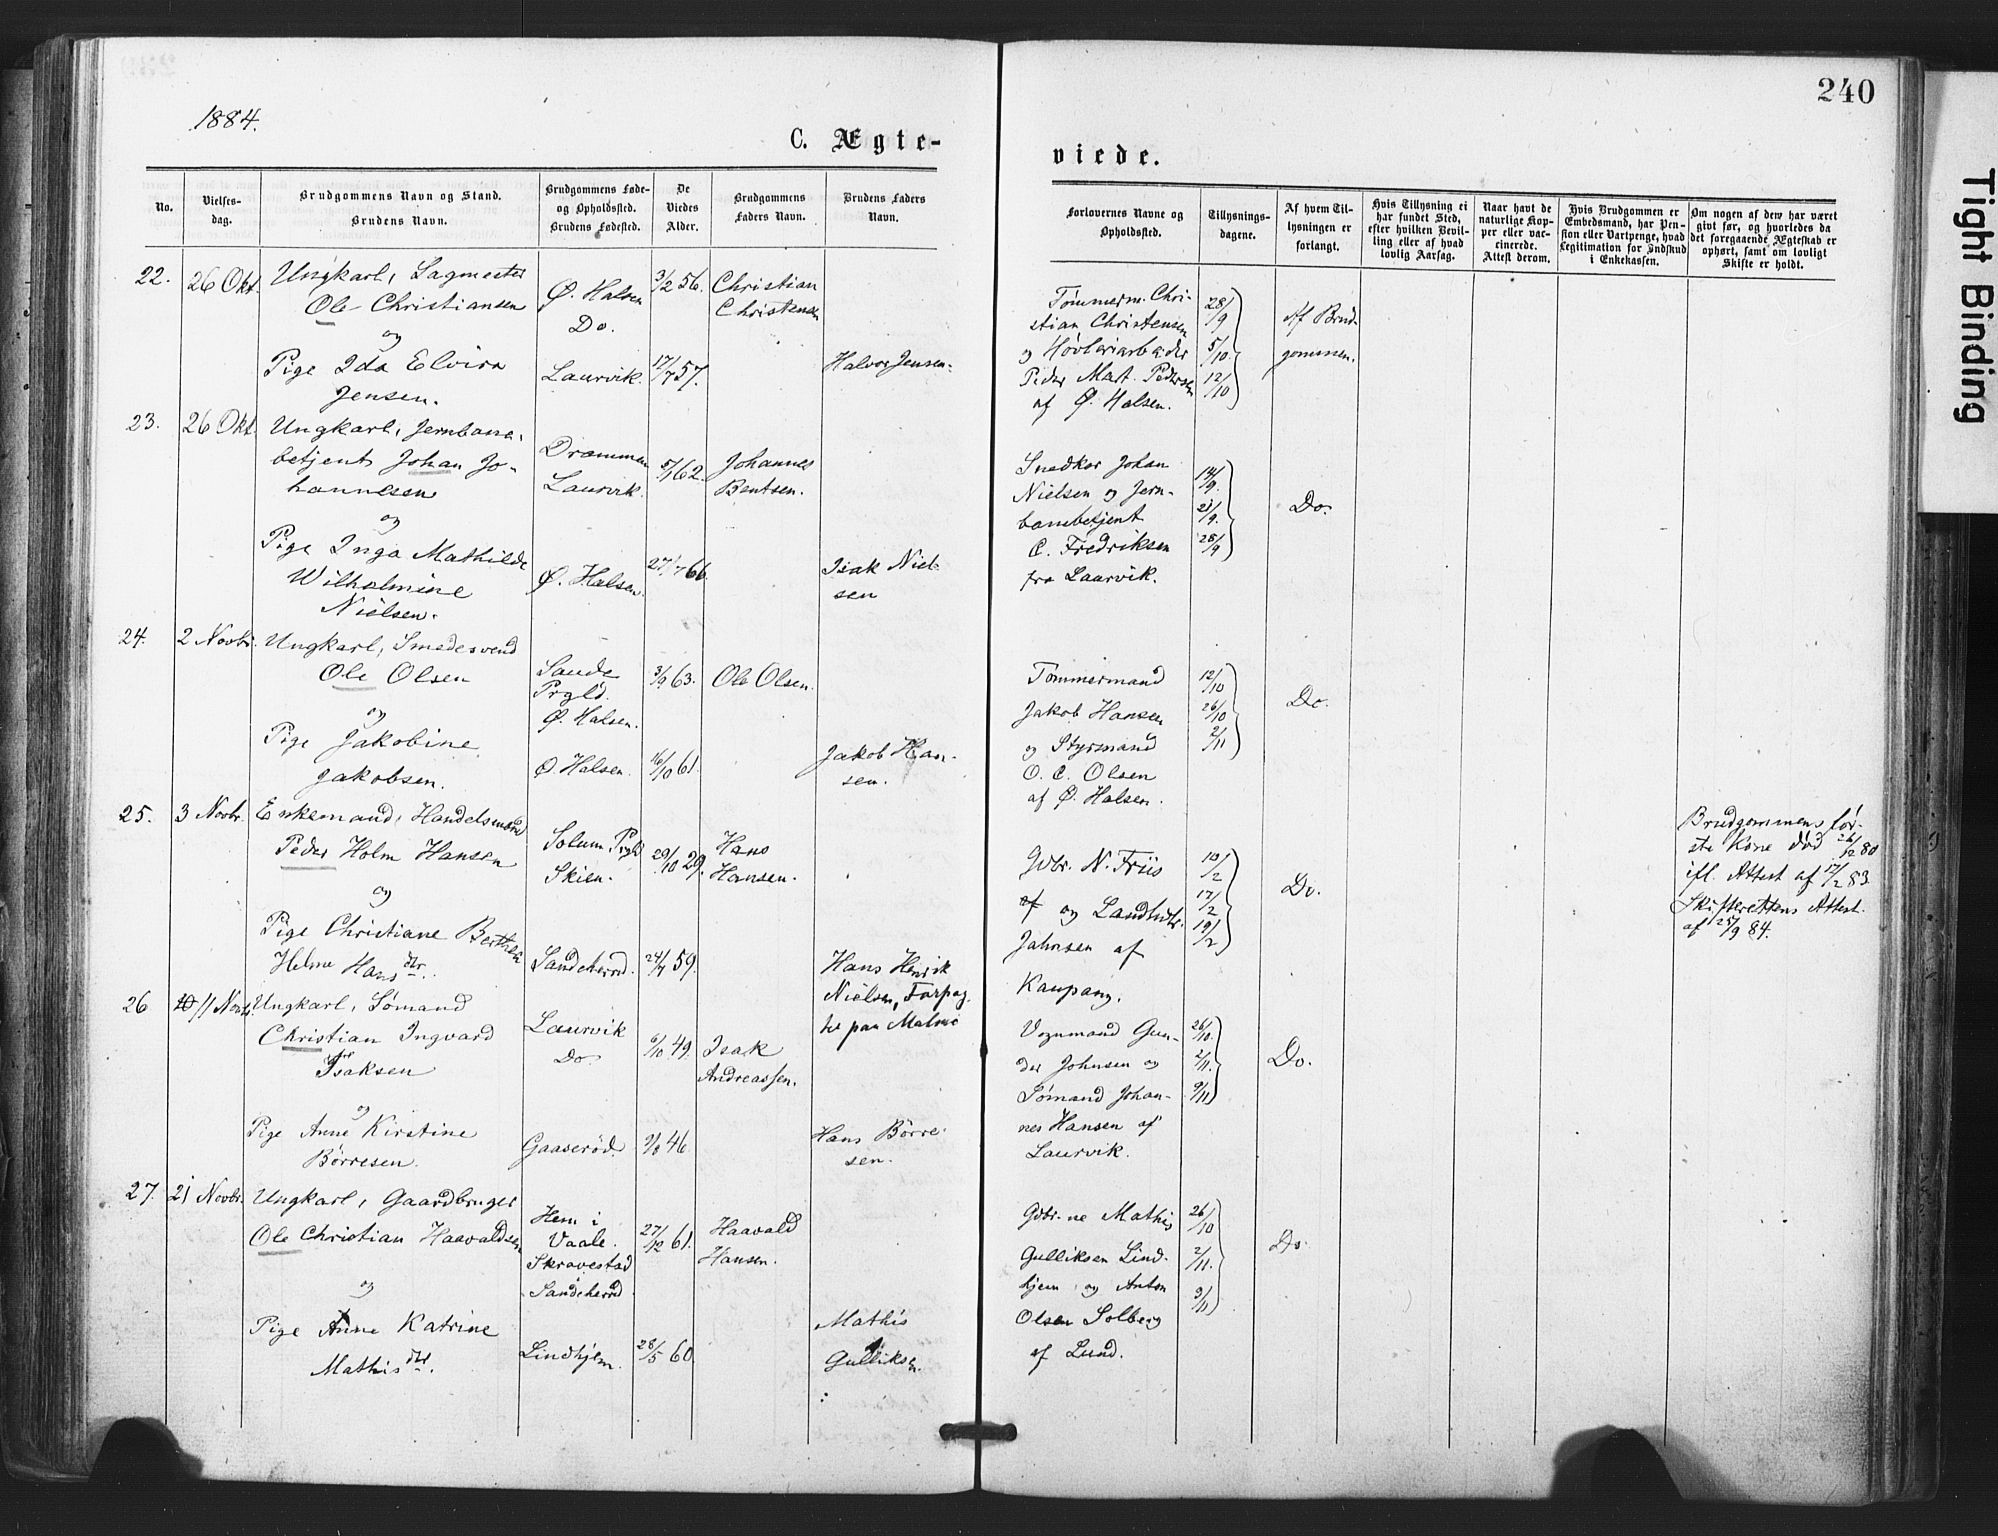 240
1884.
C. Ægte-
viede.
No.
Vielses-
dag.
Brudgommens Navn og Stand.
Brudens Navn.
Brudgommens Føde-
og Opholdssted.
Brudens Fødested.
De
Viedes
Alder.
Brudgommens
Faders Navn.
Brudens Faders
Navn.
Forlovernes Navne og
Opholdssted.
Tillysnings-
dagene.
Af hvem Til-
lysningen er
forlangt.
Hvis Tillysning ei
har fundet Sted,
efter hvilken Bevil-
ling eller af hvad
lovlig Aarsag.
Naar havt de
naturlige Kop-
per eller vac-
cinerede.
Attest derom.
Hvis Brudgommen er
Embedsmand, har Pen-
sion eller Vartpenge, hvad
Legitimation for Indskud
i Enkekassen.
Om nogen af dem har været
givt før, og hvorledes da
det foregaaende Ægteskab er
ophørt, samt om lovligt
Skifte er holdt.
22.
26 Okt.
Ungkarl, Sagmester
Ole Christiansen
og
Pige Ida Elvira
Jensen.
Ø. Halsen
Do.
Laurvik.
3/2 56.
17/7 57.
Christian
Christensen
Halvor Jensen.
Tømmerm. Chri-
stian Christensen
og Høvleriarbeider
Peder Mat. Pedersen
af Ø. Halsen.
28/9
5/10.
12/10
Af Brud-
gommen.
23.
26 Okt.
Ungkarl, Jernbane-
betjent Johan Jo-
hannesen
og
Pige Inga Mathilde
Wilhelmine
Nielsen.
Drammen
Laurvik.
Ø. Halsen.
62.
27/7 66.
Johannes
Bentsen.
Isak Niel-
sen
Snedker Johan
Nielsen og Jern-
banebetjent
C. Fredriksen
fra Laurvik.
14/9.
21/9.
28/9
Do.
24.
2 Novbr.
Ungkarl, Smedesvend
Ole Olsen
og
Pige Jakobine
Jakobsen.
Sande
Prgld.
Ø. Halsen.
Ø. Halsen.
3/9 63.
16/10 61.
Ole Olsen.
Jakob Han-
sen.
Tømmermand
Jakob Hansen
og Styrmand
O. C. Olsen
af Ø. Halsen.
12/10
26/10
2/11
Do.
25.
3 Novbr.
Enkemand, Handelsmand
Peder Holm Hansen
og
Pige Christiane Berthea
Helme Hansdtr.
Solum Prgld
Skien.
Sandeherred.
29/10 29.
59.
Hans
Hansen.
Hans Henrik
Nielsen, Forpag-
ter paa Malmø
Gdbr. N. Friis
af og Landhdlr.
Jahnsen af
Kaupang.
10/2
17/2
19/2
Do.
Brudgommens før-
ste Kone død 26/12 80
ifl. Attest af 17/2 83.
Skifterettens Attest
af 25/9 84.
26
11 Novbr.
Ungkarl, Sømand
Christian Ingvard
Isaksen
og
Pige Anne Kirstine
Børresen.
Laurvik
Do
Gaaserød.
6/10 49.
9/8 46
Isak
Andreassen.
Hans Børre-
sen.
Vognmand Gun-
der Johnsen og
Sømand Johan-
nes Hansen af
Laurvik.
26/10.
2/11.
9/11
Do.
27.
21 Novbr.
Ungkarl, Gaardbruger
Ole Christian Haavaldsen
og
Pige Anne Katrine
Mathisdtr.
Hem i
Vaale.
Skravestad
Sandeherred
Lindhjem.
27/12 61.
28/5 60.
Haavald
Hansen.
Mathis
Gulliksen.
Gdbr-ne Mathis
Gulliksen Lind-
hjem og Anton
Olsen Solberg
af Lund.
26/10
2/11.
9/11
Do.
Tight Binding